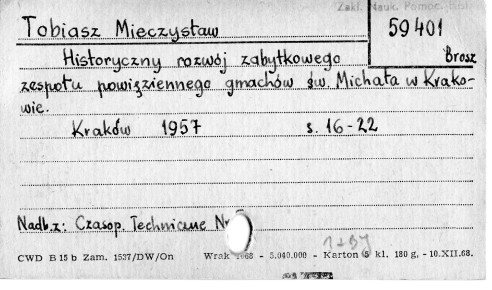 Zakł. Nauk. Pomoc. Bibl.
Tobiasz Mieczysław
59401
Brosz
Historyczny rozwój zabytkowego
zespołu powięziennego gmachów św. Michała w Krako-
wie.
Kraków 1957 s. 16-22
Nadb. z: Czasop. Techniczne Nr
CWD B 15 b Zam. 1537/DW/On Wrak 1968 - 5.040.000 - Karton 5 kl. 180 g. - 10.XII.68.